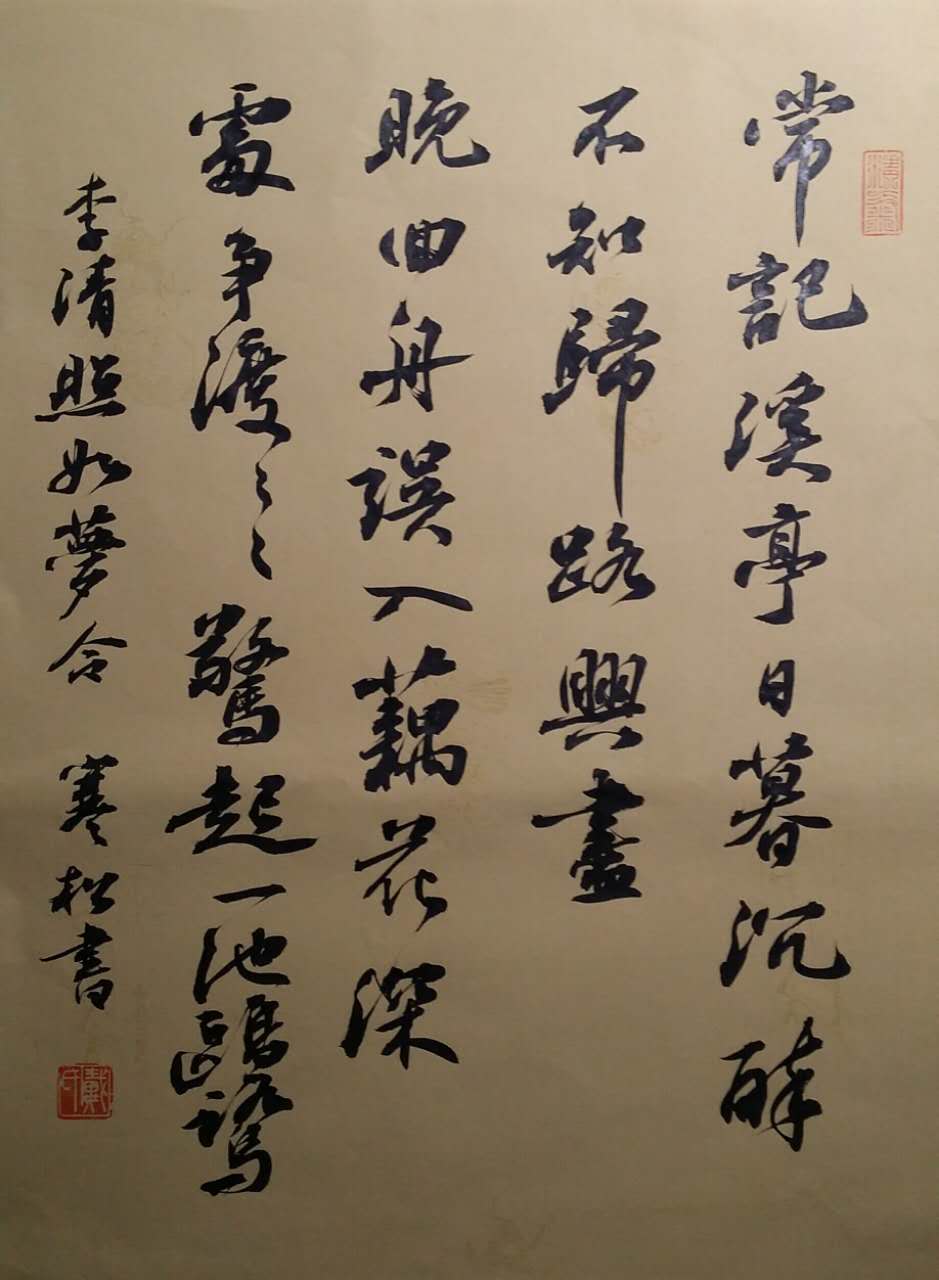 常記溪亭日暮沉醉
不知歸路興盡
晚回舟誤入藕花深
處爭渡〻〻驚起一池鷗鷺
李清照如夢令 寒松書